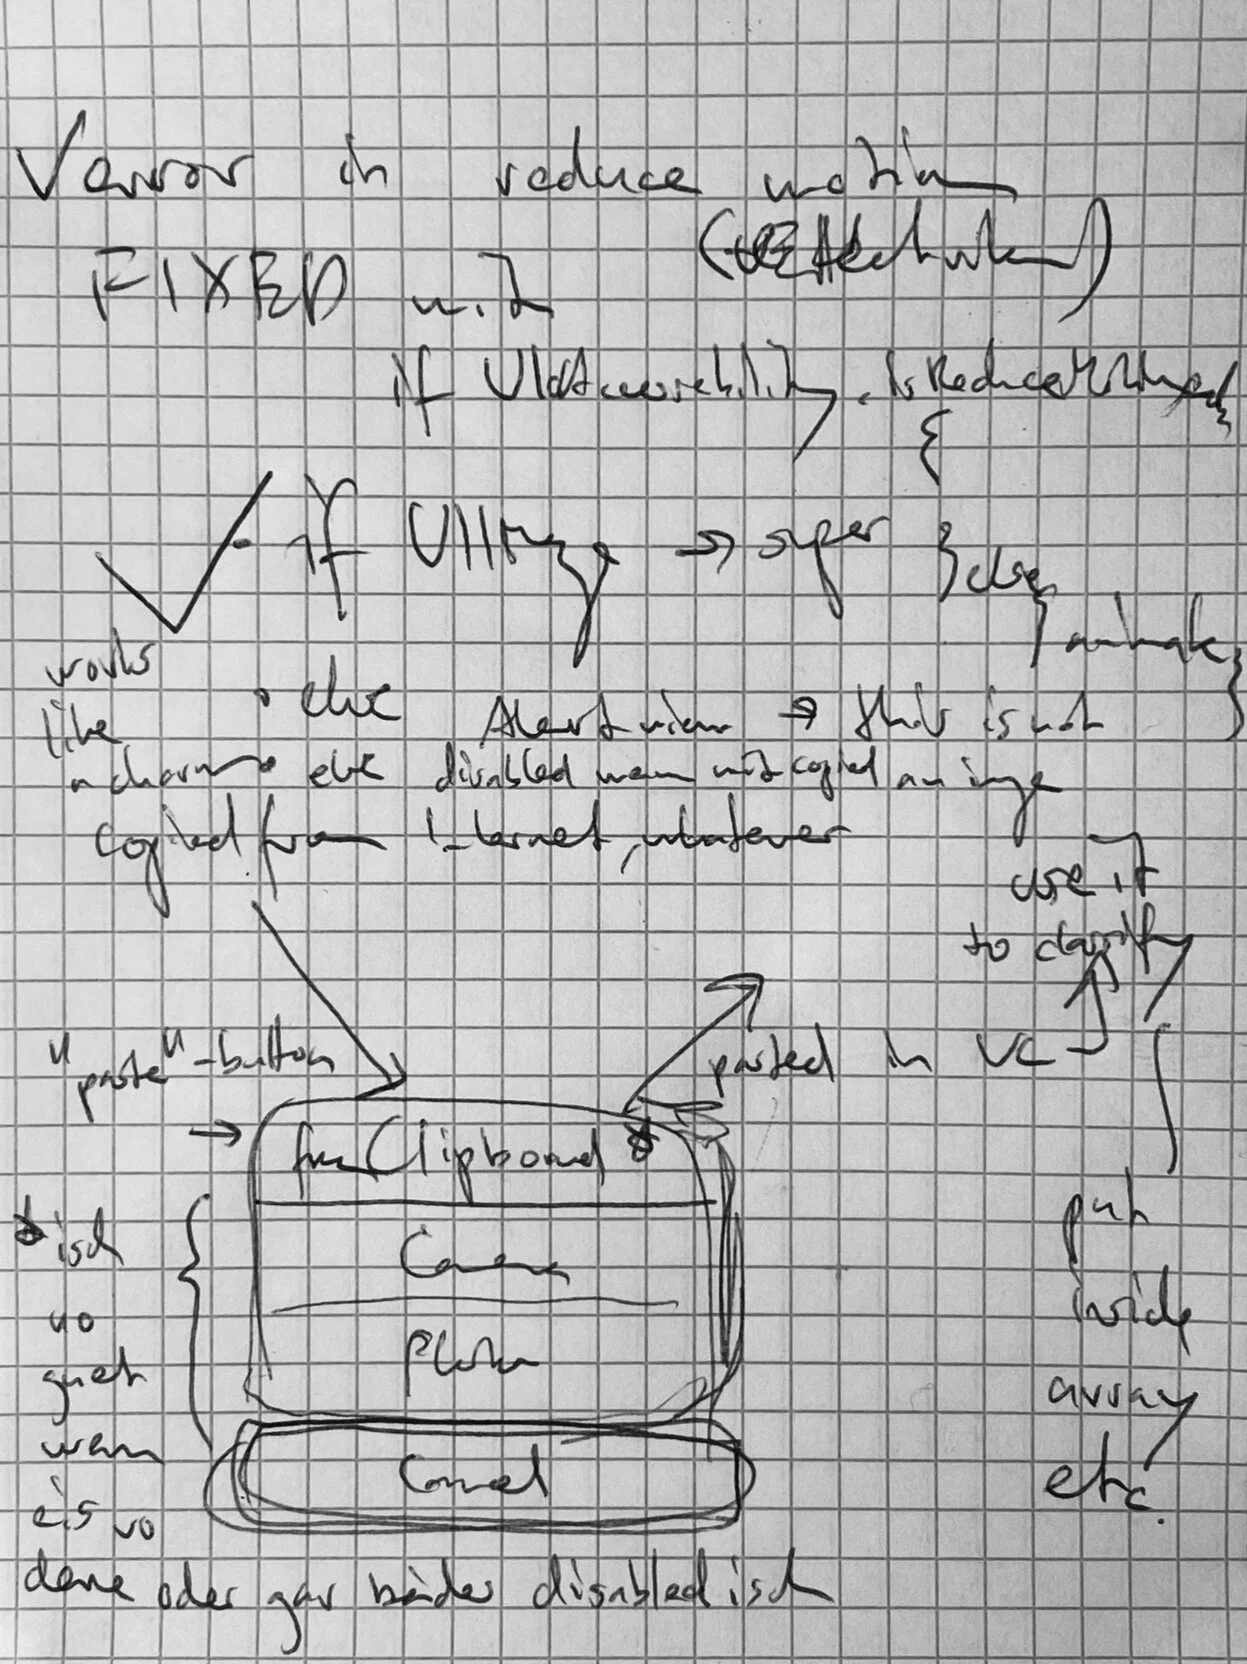 √ error in reduce motion
FIXED mit
if UIAccessibility.isReduceMotionEnabled
{
if UIImage → super } else
{ animate }
works
like
a charm
• else Alert view → this is not
• else disabled wenn nit copied an image
copied from Internet, whatever
use it
to classify
"paste"-button
pasted in VC
→ from Clipboard *
Camera
Photo
Cancel
* isch
no
guet
wenn
eis vo
dene oder gar beides disabled isch
put
inside
array
etc.